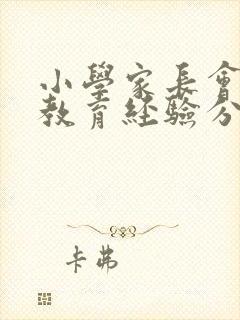 小學家長會
教育經驗分
卡弗